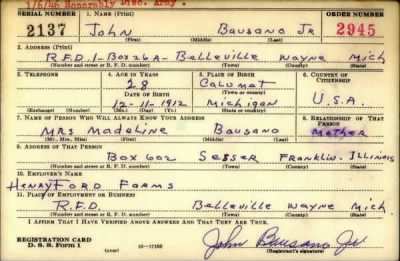 1/6/46 Honorably Disc. Army.
SERIAL NUMBER 1. NAME (Print) ORDER NUMBER
2137 John Bausano Jr 2945
(First) (Middle) (Last)
2. ADDRESS (Print)
R.F.D. 1-Box 26A- Belleville Wayne Mich
(Number and street or R. F. D. number) (Town) (County) (State)
3. TELEPHONE 4. AGE IN YEARS 5. PLACE OF BIRTH 6. COUNTRY OF CITIZENSHIP
28 Calumat
DATE OF BIRTH (Town or county)
12-11-1912 Michigan U.S.A.
(Exchange) (Number) (Mo.) (Day) (Yr.) (State or country)
7. NAME OF PERSON WHO WILL ALWAYS KNOW YOUR ADDRESS 8. RELATIONSHIP OF THAT PERSON
Mrs Madeline Bausano Mother
(Mr., Mrs., Miss) (First) (Middle) (Last)
9. ADDRESS OF THAT PERSON
Box 602 Sesser Franklin. Illinois
(Number and street or R. F. D. number) (Town) (County) (State)
10. EMPLOYER'S NAME
Henry Ford Farms
11. PLACE OF EMPLOYMENT OR BUSINESS
R.F.D. Belleville Wayne Mich.
(Number and street or R. F. D. number) (Town) (County) (State)
I AFFIRM THAT I HAVE VERIFIED ABOVE ANSWERS AND THAT THEY ARE TRUE.
REGISTRATION CARD
D. S. S. Form 1 16-17105 John Bausano Jr.
(Registrant's signature)